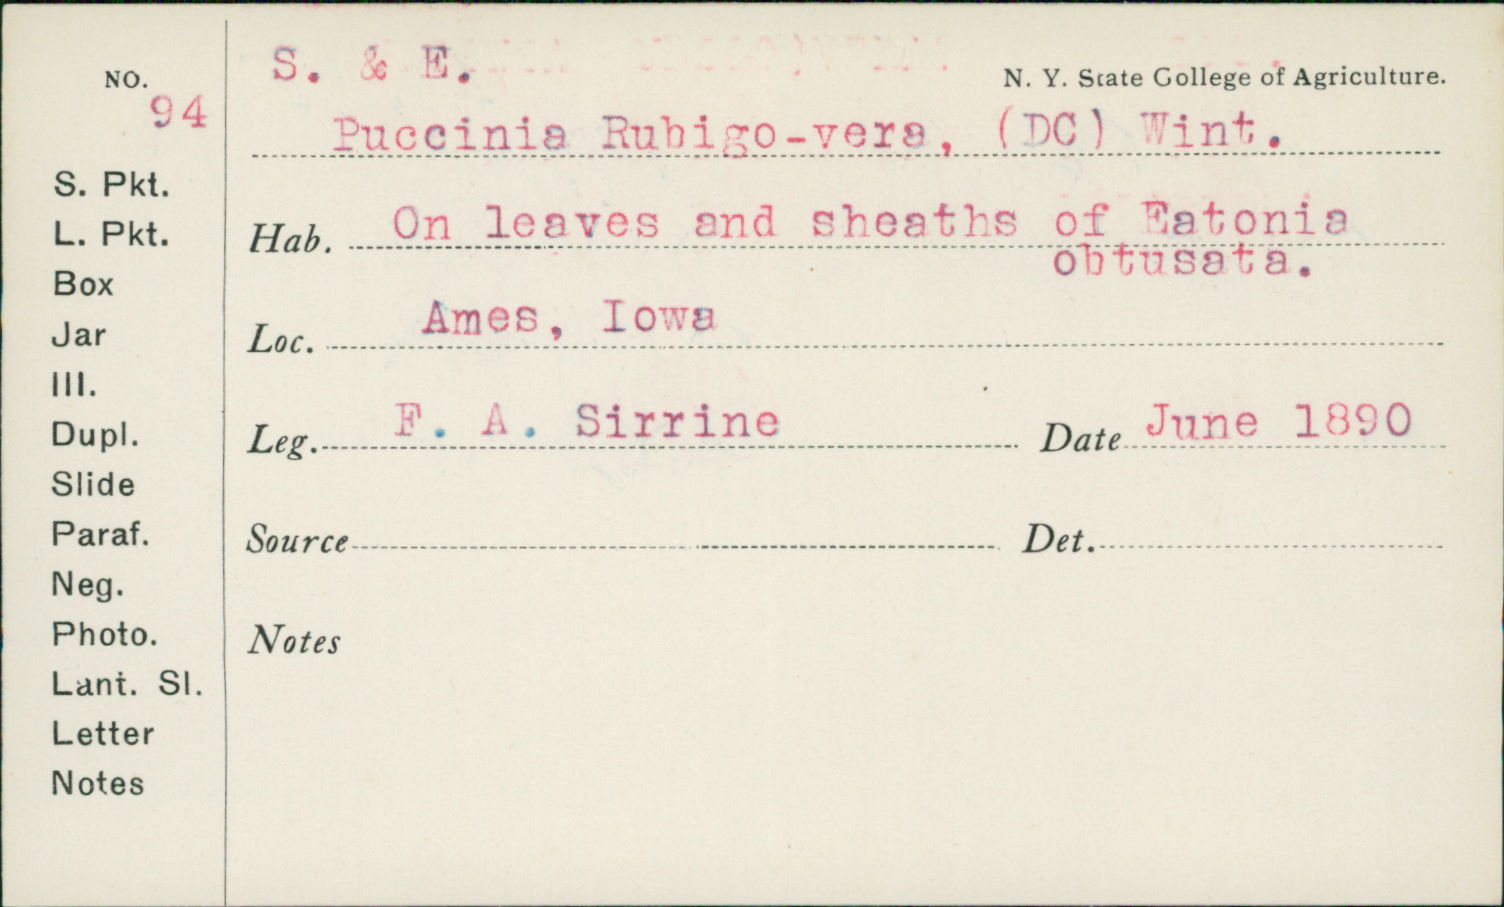 NO.
94
S. Pkt.
L. Pkt.
Box
Jar
Ill.
Dupl.
Slide
Paraf.
Neg.
Photo.
Lant. Sl.
Letter
Notes
S. & E.
N. Y. State College of Agriculture.
Puccinia Rubigo-vera, (DC) Wint.
Hab. On leaves and sheaths of Eatonia
obtusata.
Loc. Ames, Iowa
Leg. F. A. Sirrine Date June 1890
Source Det.
Notes